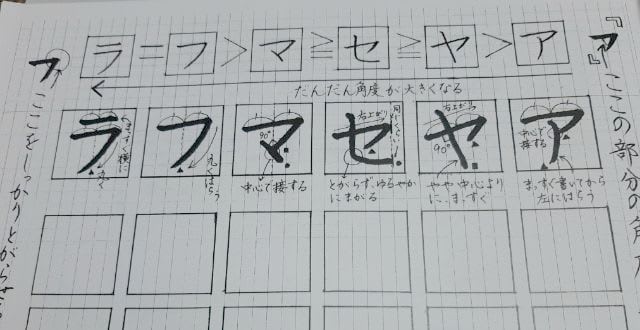 『ア』ここの部分の角
ラ＝フ＞マ≧セ≧ヤ＞ア
だんだん角度が大きくなる
フ ここをしっかりとがらせ
ラ フ マ セ ヤ ア
まっすぐ横に
丸く
丸くはらう
90°
中心で接する
右上がり
同じくらい
とがらず、ゆるやか
にまがる
右上がり
90°
やや中心より
に、まっすぐ
中心で
接する
まっすぐ書いてから
左にはらう